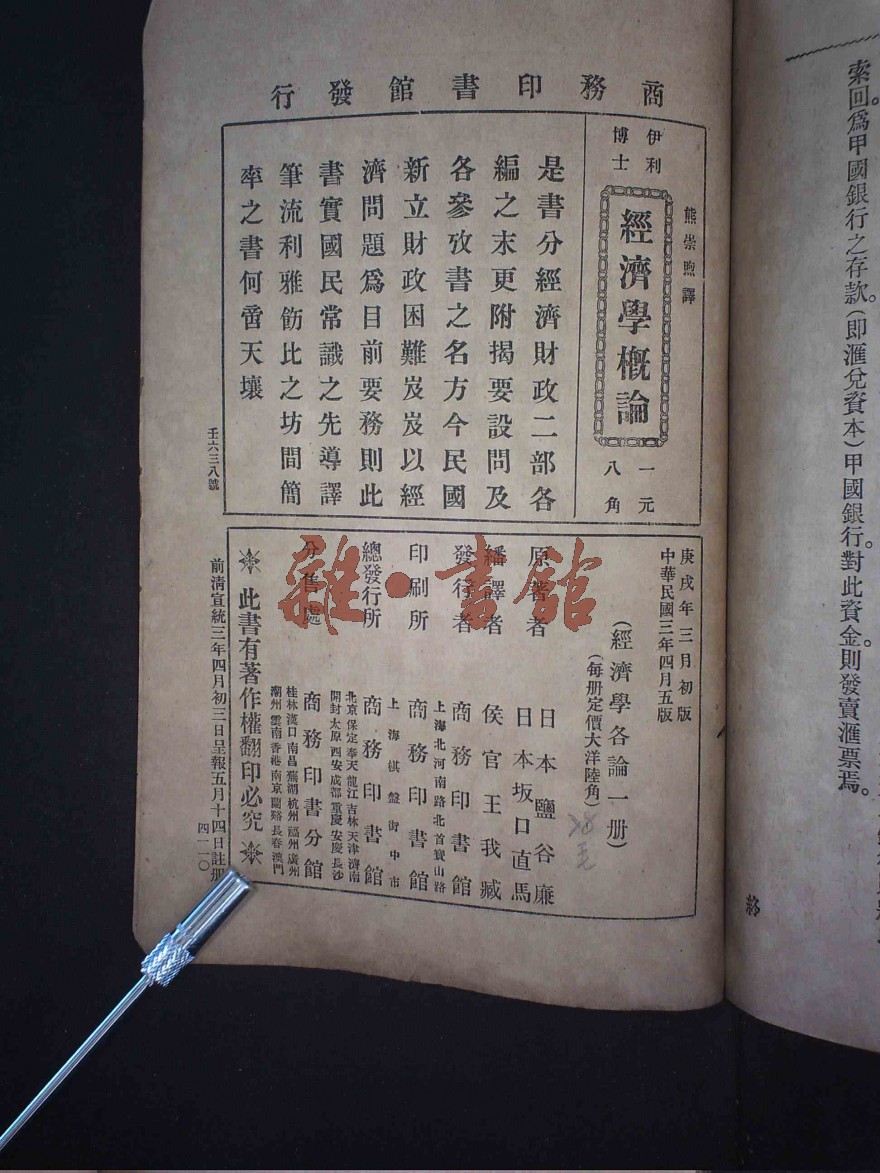 索回。爲甲國銀行之存款。(即滙兌資本)甲國銀行。對此資金。則發賣滙票焉。
終
商務印書館發行
熊崇煦譯
伊利博士
經濟學概論
一元八角
是書分經濟財政二部各
編之末更附揭要設問及
各參攷書之名方今民國
新立財政困難岌岌以經
濟問題爲目前要務則此
書實國民常識之先導譯
筆流利雅飭比之坊間簡
率之書何啻天壤
壬六三八號
庚戌年三月初版
中華民國三年四月五版
(經濟學各論一册)
(每册定價大洋陸角)
原著者 日本鹽谷廉
日本坂口直馬
繙譯者 侯官王我臧
發行者 商務印書館
上海北河南路北首寶山路
印刷所 商務印書館
上海棋盤街中市
總發行所 商務印書館
北京保定奉天龍江吉林天津濟南
開封太原西安成都重慶安慶長沙
分售處 商務印書分館
桂林漢口南昌蕪湖杭州福州廣州
潮州雲南香港南京蘭谿長春澳門
此書有著作權翻印必究
前清宣統三年四月初三日呈報五月十四日註册
四一一〇
雜·書館